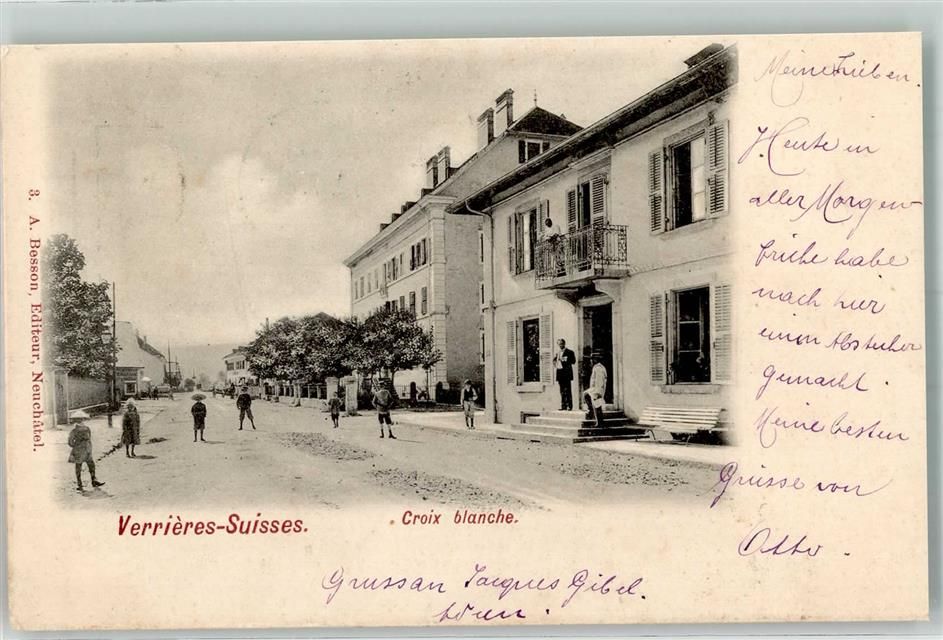 3. A. Besson, Editeur, Neuchâtel.
Meine Lieben
Heute in
aller Morgen
frühe habe
nach hier
einen Abstecher
gemacht.
Meine besten
Grüsse von
Otto.
Verrières-Suisses.
Croix blanche.
Gruss an Jacques Gibel.